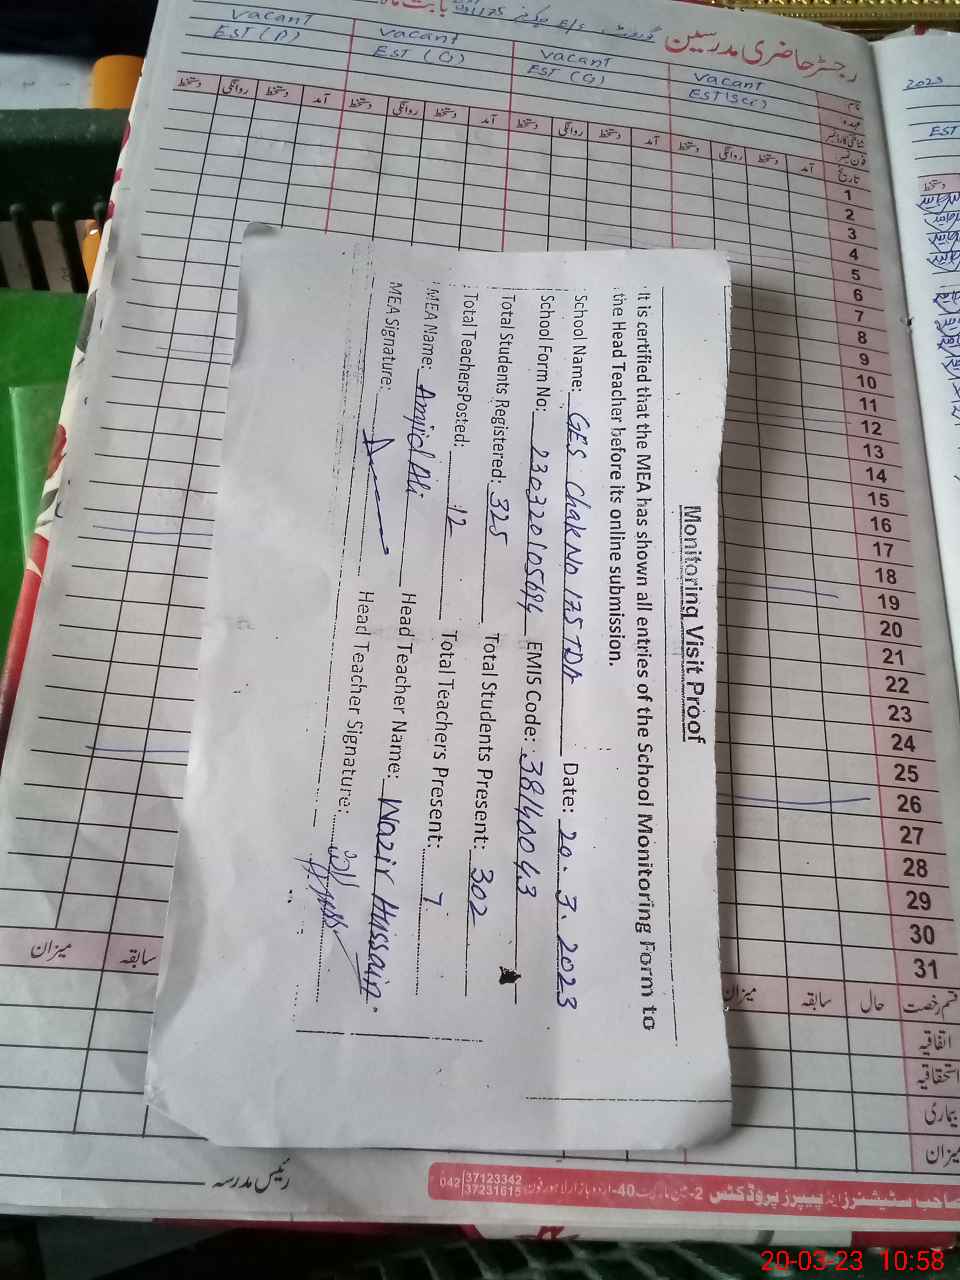 رجسٹر حاضری مدرسین
vacant
EST (P)
vacant
EST (O)
vacant
EST (G)
vacant
EST (Sci)
نام
عہدہ
تاریخ
آمد
دستخط
روانگی
دستخط
آمد
دستخط
روانگی
دستخط
آمد
دستخط
روانگی
دستخط
آمد
دستخط
روانگی
دستخط
1
2
3
4
5
6
7
8
9
10
11
12
13
14
15
16
17
18
19
20
21
22
23
24
25
26
27
28
29
30
31
قسم رخصت
حال
سابقہ
میزان
سابقہ
میزان
اتفاقیہ
استحقاقیہ
بیماری
میزان
رئیس مدرسہ
042 37123342
37231615
2023
EST
دستخط
Monitoring Visit Proof
It is certified that the MEA has shown all entries of the School Monitoring Form to
the Head Teacher before its online submission.
School Name: GES Chak No 175 TDA Date: 20.3.2023
School Form No: 230320105694 EMIS Code: 38140043
Total Students Registered: 325 Total Students Present: 302
Total TeachersPosted: 12 Total Teachers Present: 7
MEA Name: Amjid Ali Head Teacher Name: Wazir Hussain
MEA Signature: Head Teacher Signature:
20-03-23 10:58